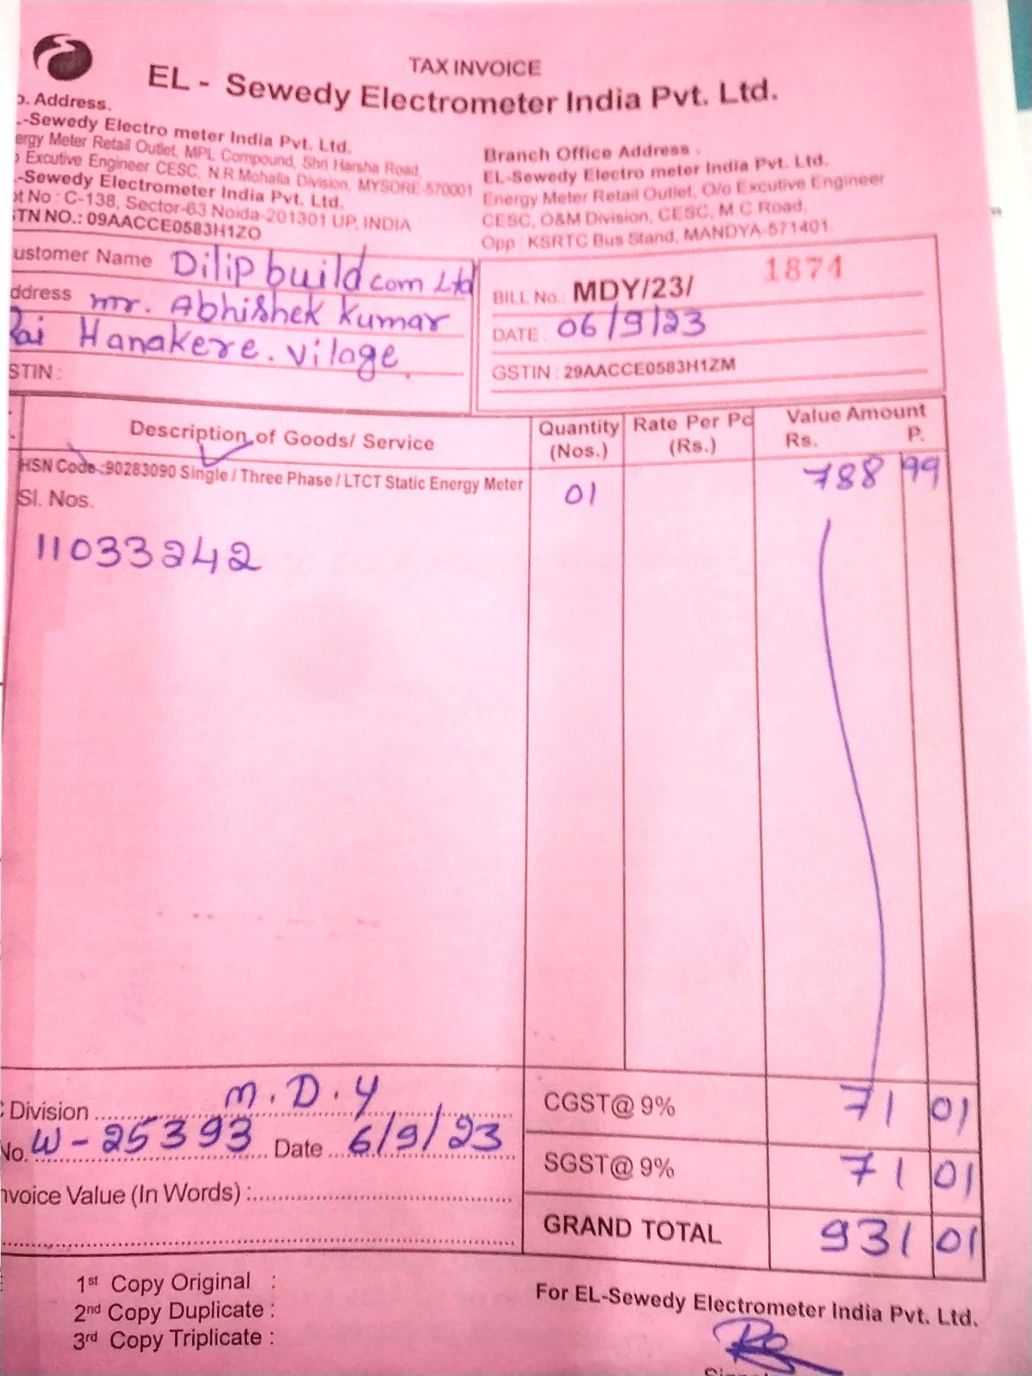 TAX INVOICE
EL - Sewedy Electrometer India Pvt. Ltd.
o. Address.
-Sewedy Electro meter India Pvt. Ltd.
ergy Meter Retail Outlet, MPL Compound, Shri Harsha Road,
o Excutive Engineer CESC, N.R Mohalla Division, MYSORE-570001
-Sewedy Electrometer India Pvt. Ltd.
ot No : C-138, Sector-63 Noida-201301 UP, INDIA
STN NO.: 09AACCE0583H1ZO
Branch Office Address .
EL-Sewedy Electro meter India Pvt. Ltd.
Energy Meter Retail Outlet, O/o Excutive Engineer
CESC, O&M Division, CESC, M.C Road,
Opp : KSRTC Bus Stand, MANDYA-571401.
ustomer Name Dilip buildcom Ltd
ddress mr. Abhishek Kumar
Rai Hanakere. vilage
STIN :
BILL No. MDY/23/ 1874
DATE : 06/9/23
GSTIN : 29AACCE0583H1ZM
Description of Goods/ Service Quantity (Nos.) Rate Per Pc (Rs.) Value Amount Rs. P.
HSN Code.:90283090 Single / Three Phase / LTCT Static Energy Meter 01 788 99
Sl. Nos.
11033242
Division M.D.Y
No. W-25393 Date 6/9/23
nvoice Value (In Words) :
CGST@ 9% 71 01
SGST@ 9% 71 01
GRAND TOTAL 931 01
1st Copy Original :
2nd Copy Duplicate :
3rd Copy Triplicate :
For EL-Sewedy Electrometer India Pvt. Ltd.